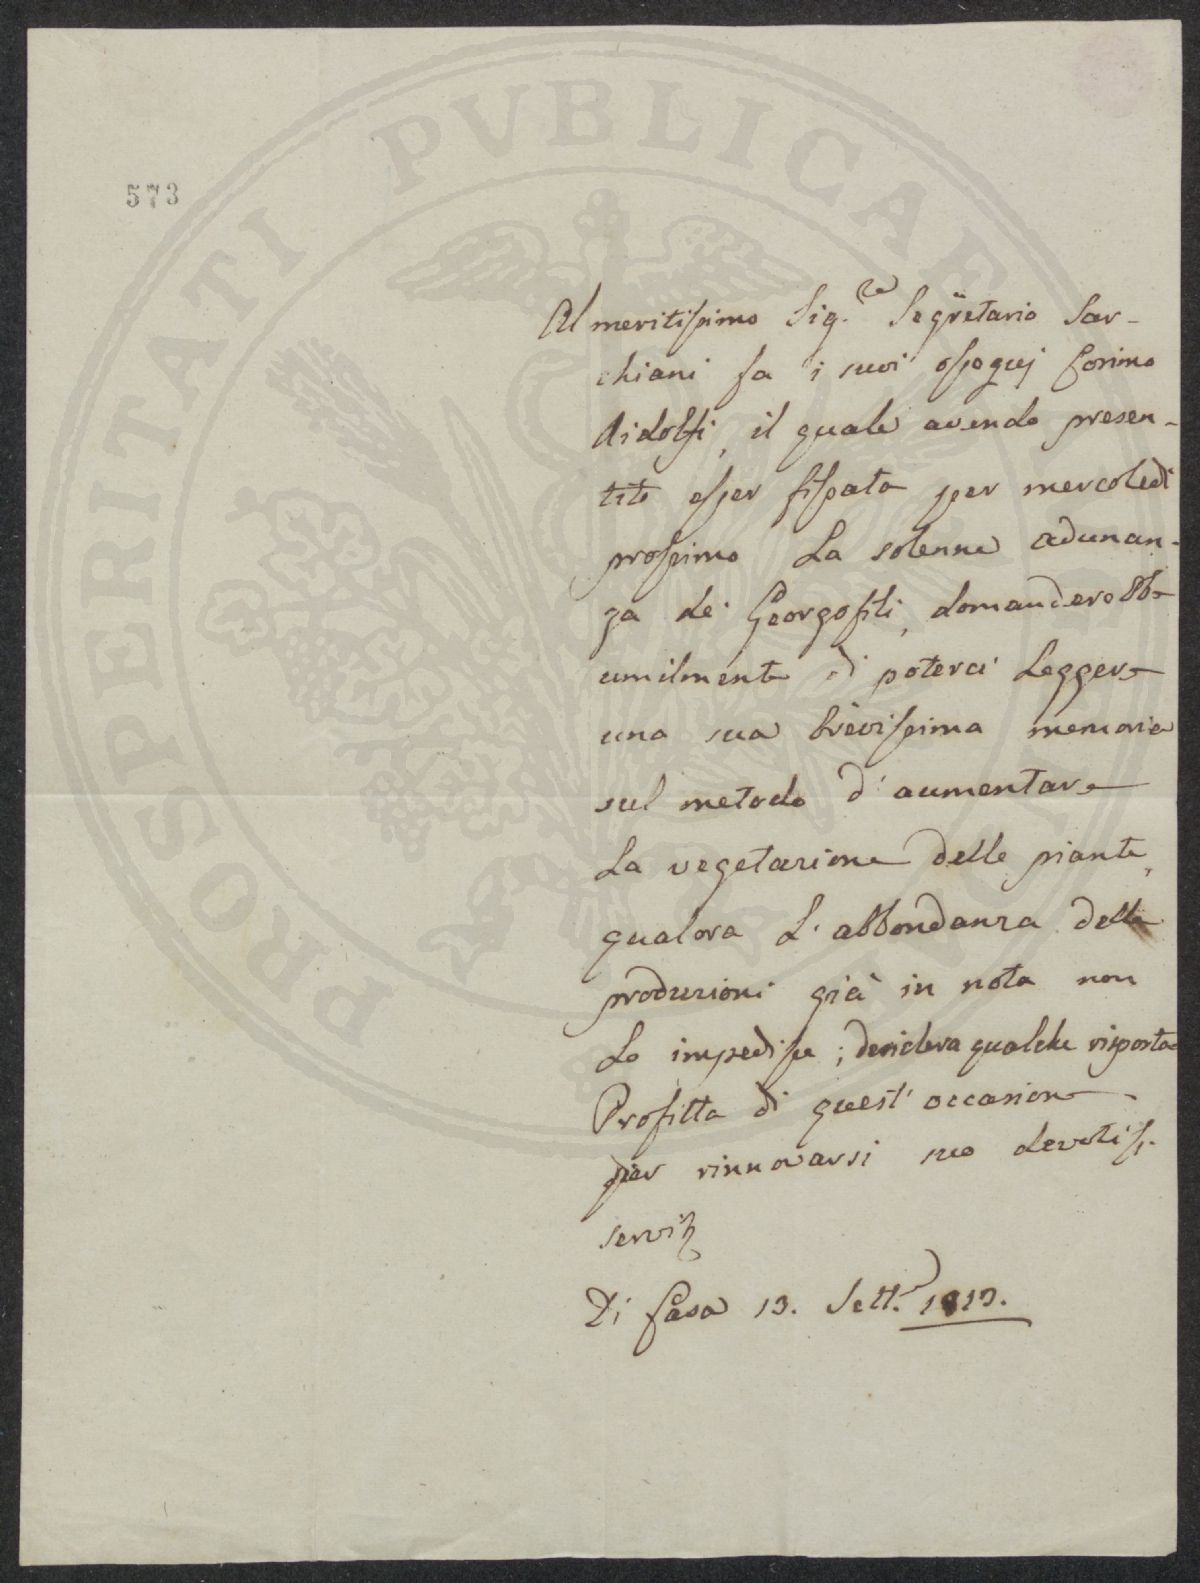 PROSPERITATI PVBLICAE
573
Al meritissimo Sig.re Segretario Sar-
chiani fa i suoi ossequj Cosimo
Ridolfi, il quale avendo presen-
tito esser fissata per mercoledì
prossimo La solenne adunan-
za de' Georgofili, domanderebbe
umilmente di poterci Leggere
una sua brevissima memoria
sul metodo d'aumentare
La vegetazione delle piante,
qualora L'abbondanza delle
produzioni già in nota non
Lo impedisse; desidera qualche risposta
Profitta di quest'occasione
per rinnovarsi suo devotiss.
serv
Di Casa 13. Sett.e 1813.